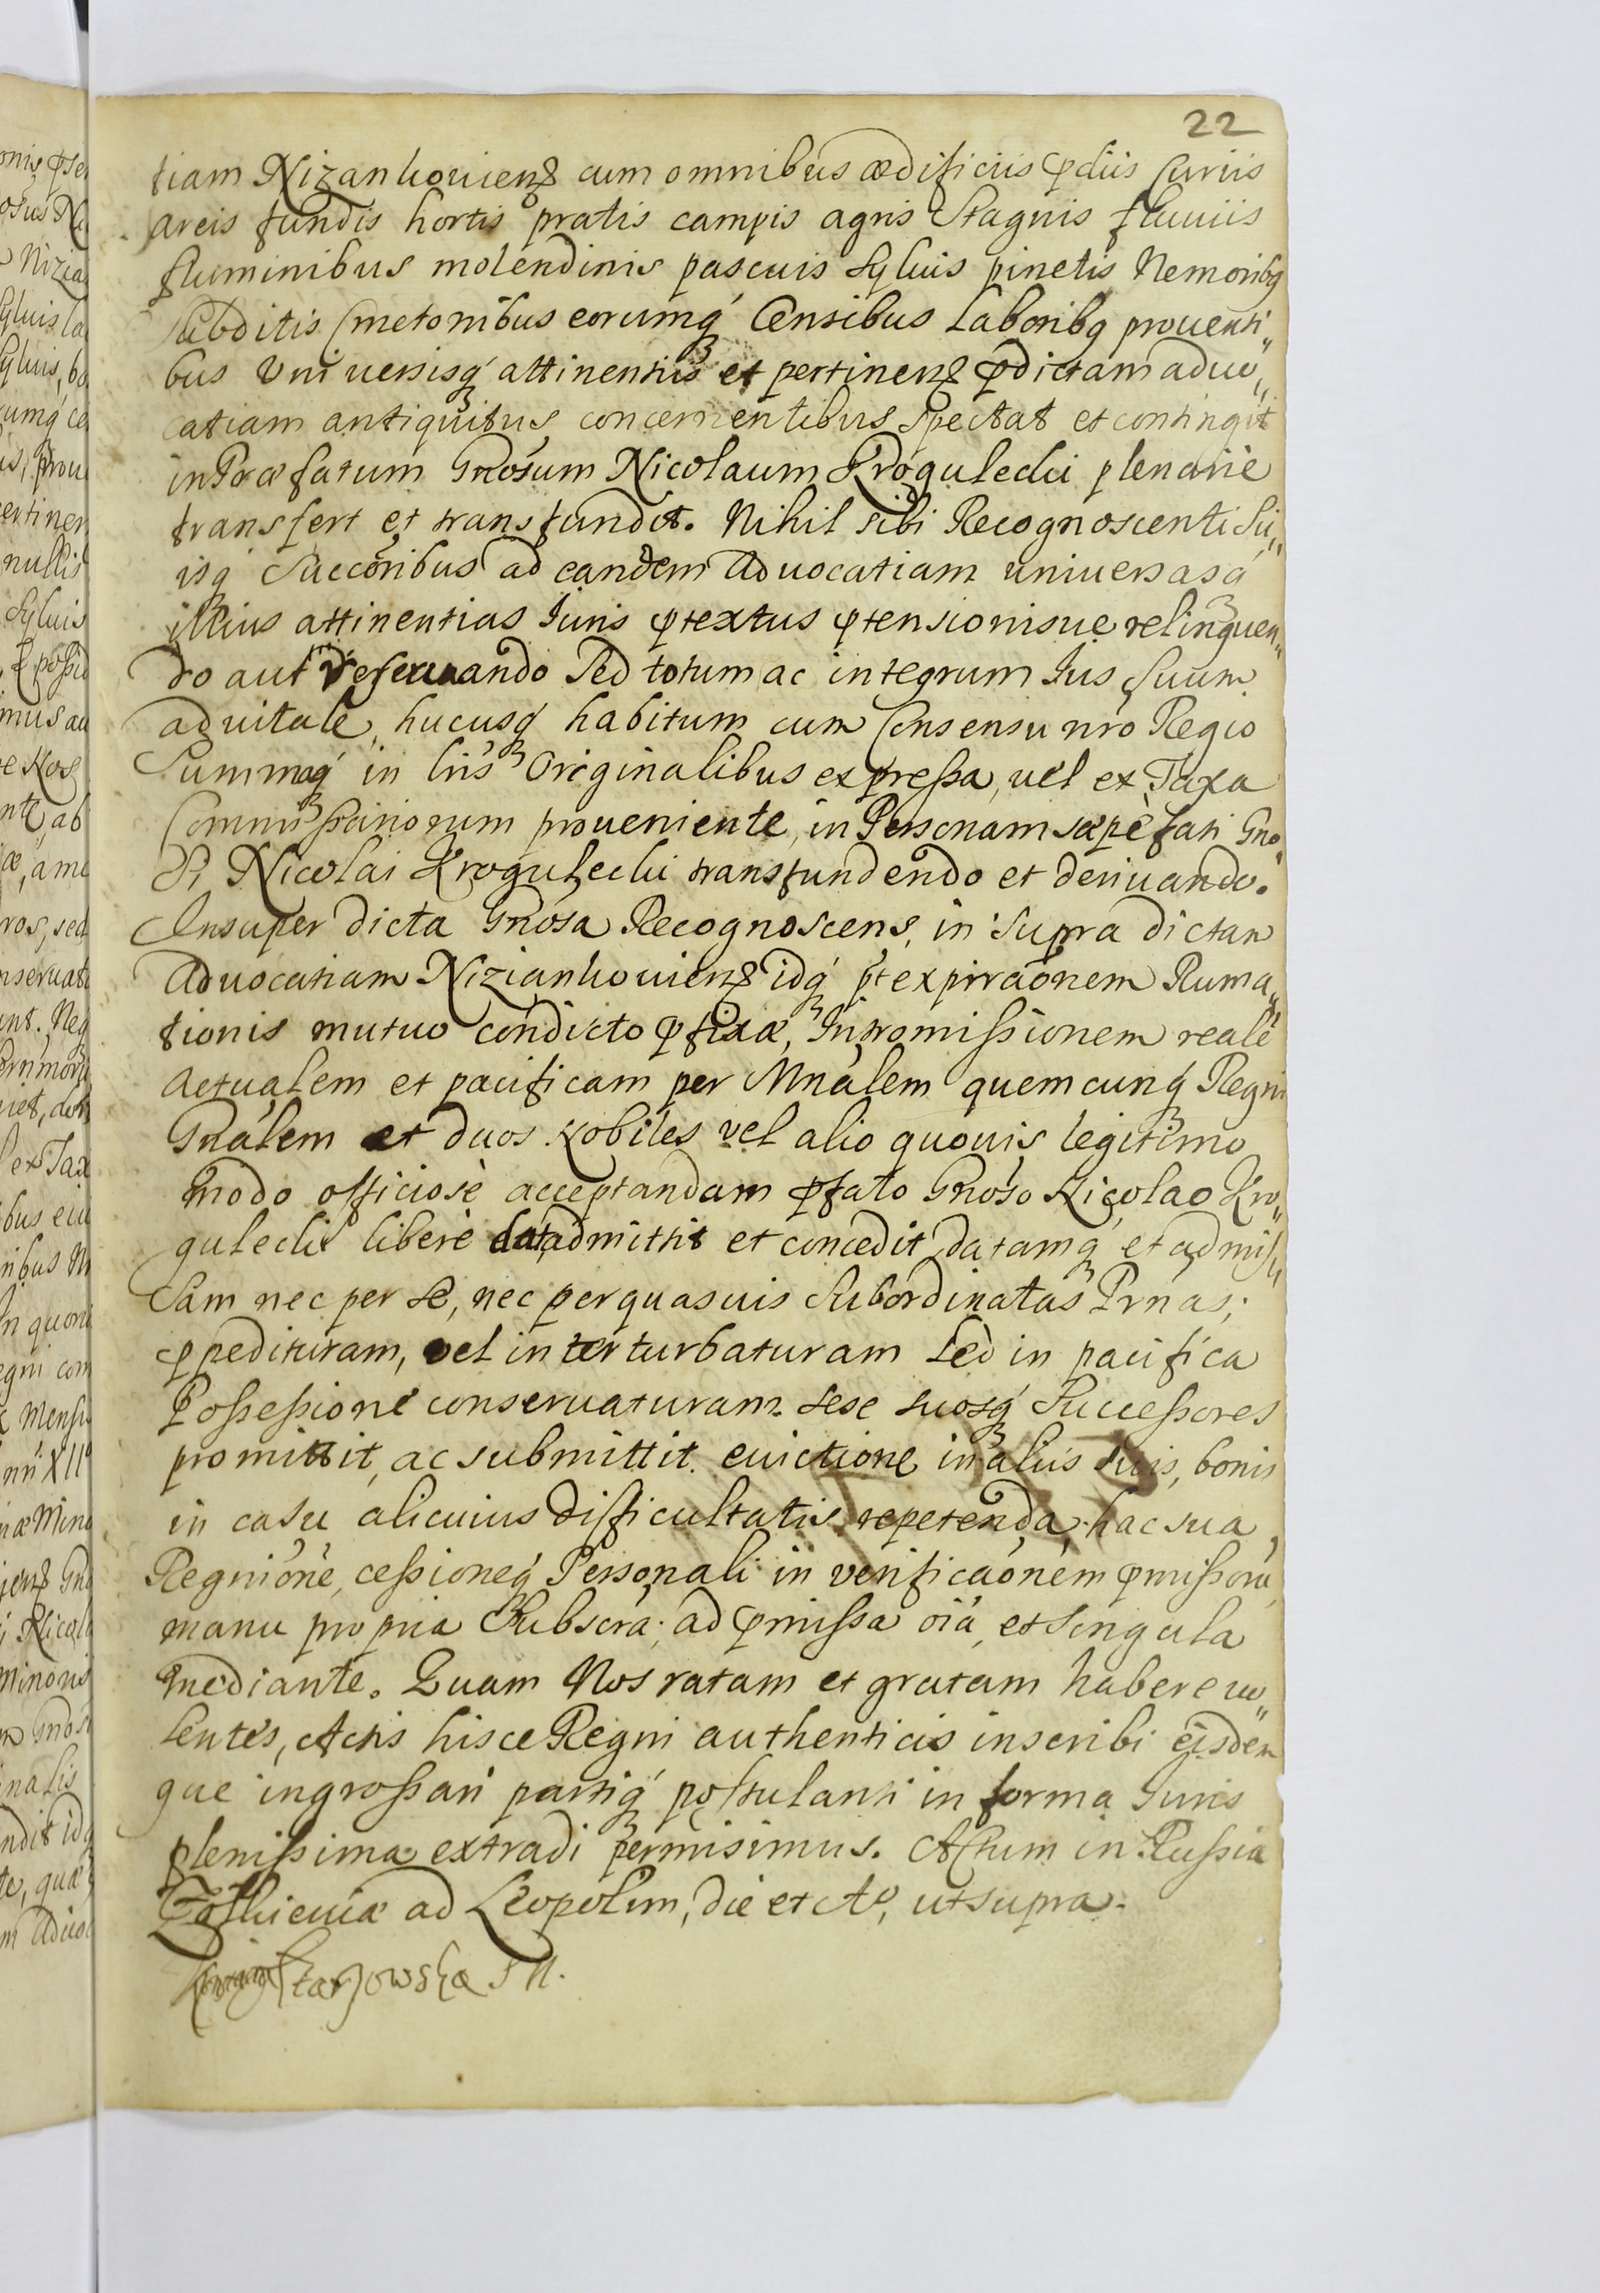 22
tiam Nizankouiens cum omnibus ædificiis pdiis Curiis
areis fundis hortis pratis campis agris Stagnis fluuiis
fluminibus molendinis pascuis syluis pinetis Nemoribq
Subditis Cmetonibus eorumq Censibus Laboribq prouenti„
bus Vniuersisq attinentiis et pertinens pdictam aduo„
catiam antiquitus concernentibus spectat et contingit
in Præfatum Gnosum Nicolaum Krogulecki plenarie
transfert et transfundit. Nihil sibi Recognoscenti su„
isq Succoribus ad eandem Aduocatiam uniuersasq
illius attinentias Iuris ptextus ptensionisue relinquen„
do aut reseruando Sed totum ac integrum Ius suum
aduitale, hucusq habitum cum Consensu nro Regio
Summaq in lris Originalibus expressa, vel ex Taxa
Commissariorum proueniente, in Personam sæpè fati Gno„
si Nicolai Krogulecki transfundendo et deriuando.
Insuper dicta Gnosa Recognoscens, in supra dictam
Aduocatiam Niziankouiens idq pt expiraonem Ruma„
tionis mutuo condicto pfixæ, Intromissionem realē
Actualem et pacificam per Mnalem quemcunq Regni
Gnalem et duos Nobiles vel alio quouis legitimo
modo officiosè acceptandam pfato Gnoso Nicolao Kro„
gulecki liberè dat admittit et concedit datamq et admis„
sam nec per se, nec per quasuis Subordinatas Prnas,
ppedituram, vel interturbaturam sed in pacifica
Possessione conseruaturam sese suosq Successores
promittit, ac submittit. euictione in aliis suis, bonis
in casu alicuius difficultatis repetenda, hac sua,
Regnione, cessioneq Personali in verificaonem pmissorū
manu propria Subscra ad pmissa oia, et singula
mediante. Quam Nos ratam et gratam habere uo„
lentes, Actis hisce Regni authenticis inscribi eisdem
que ingrossari partiq postulanti in forma Iuris
plenissima extradi permisimus. Actum in Russia
Zolkieuiæ ad Leopolim, die et Ao, ut supra.